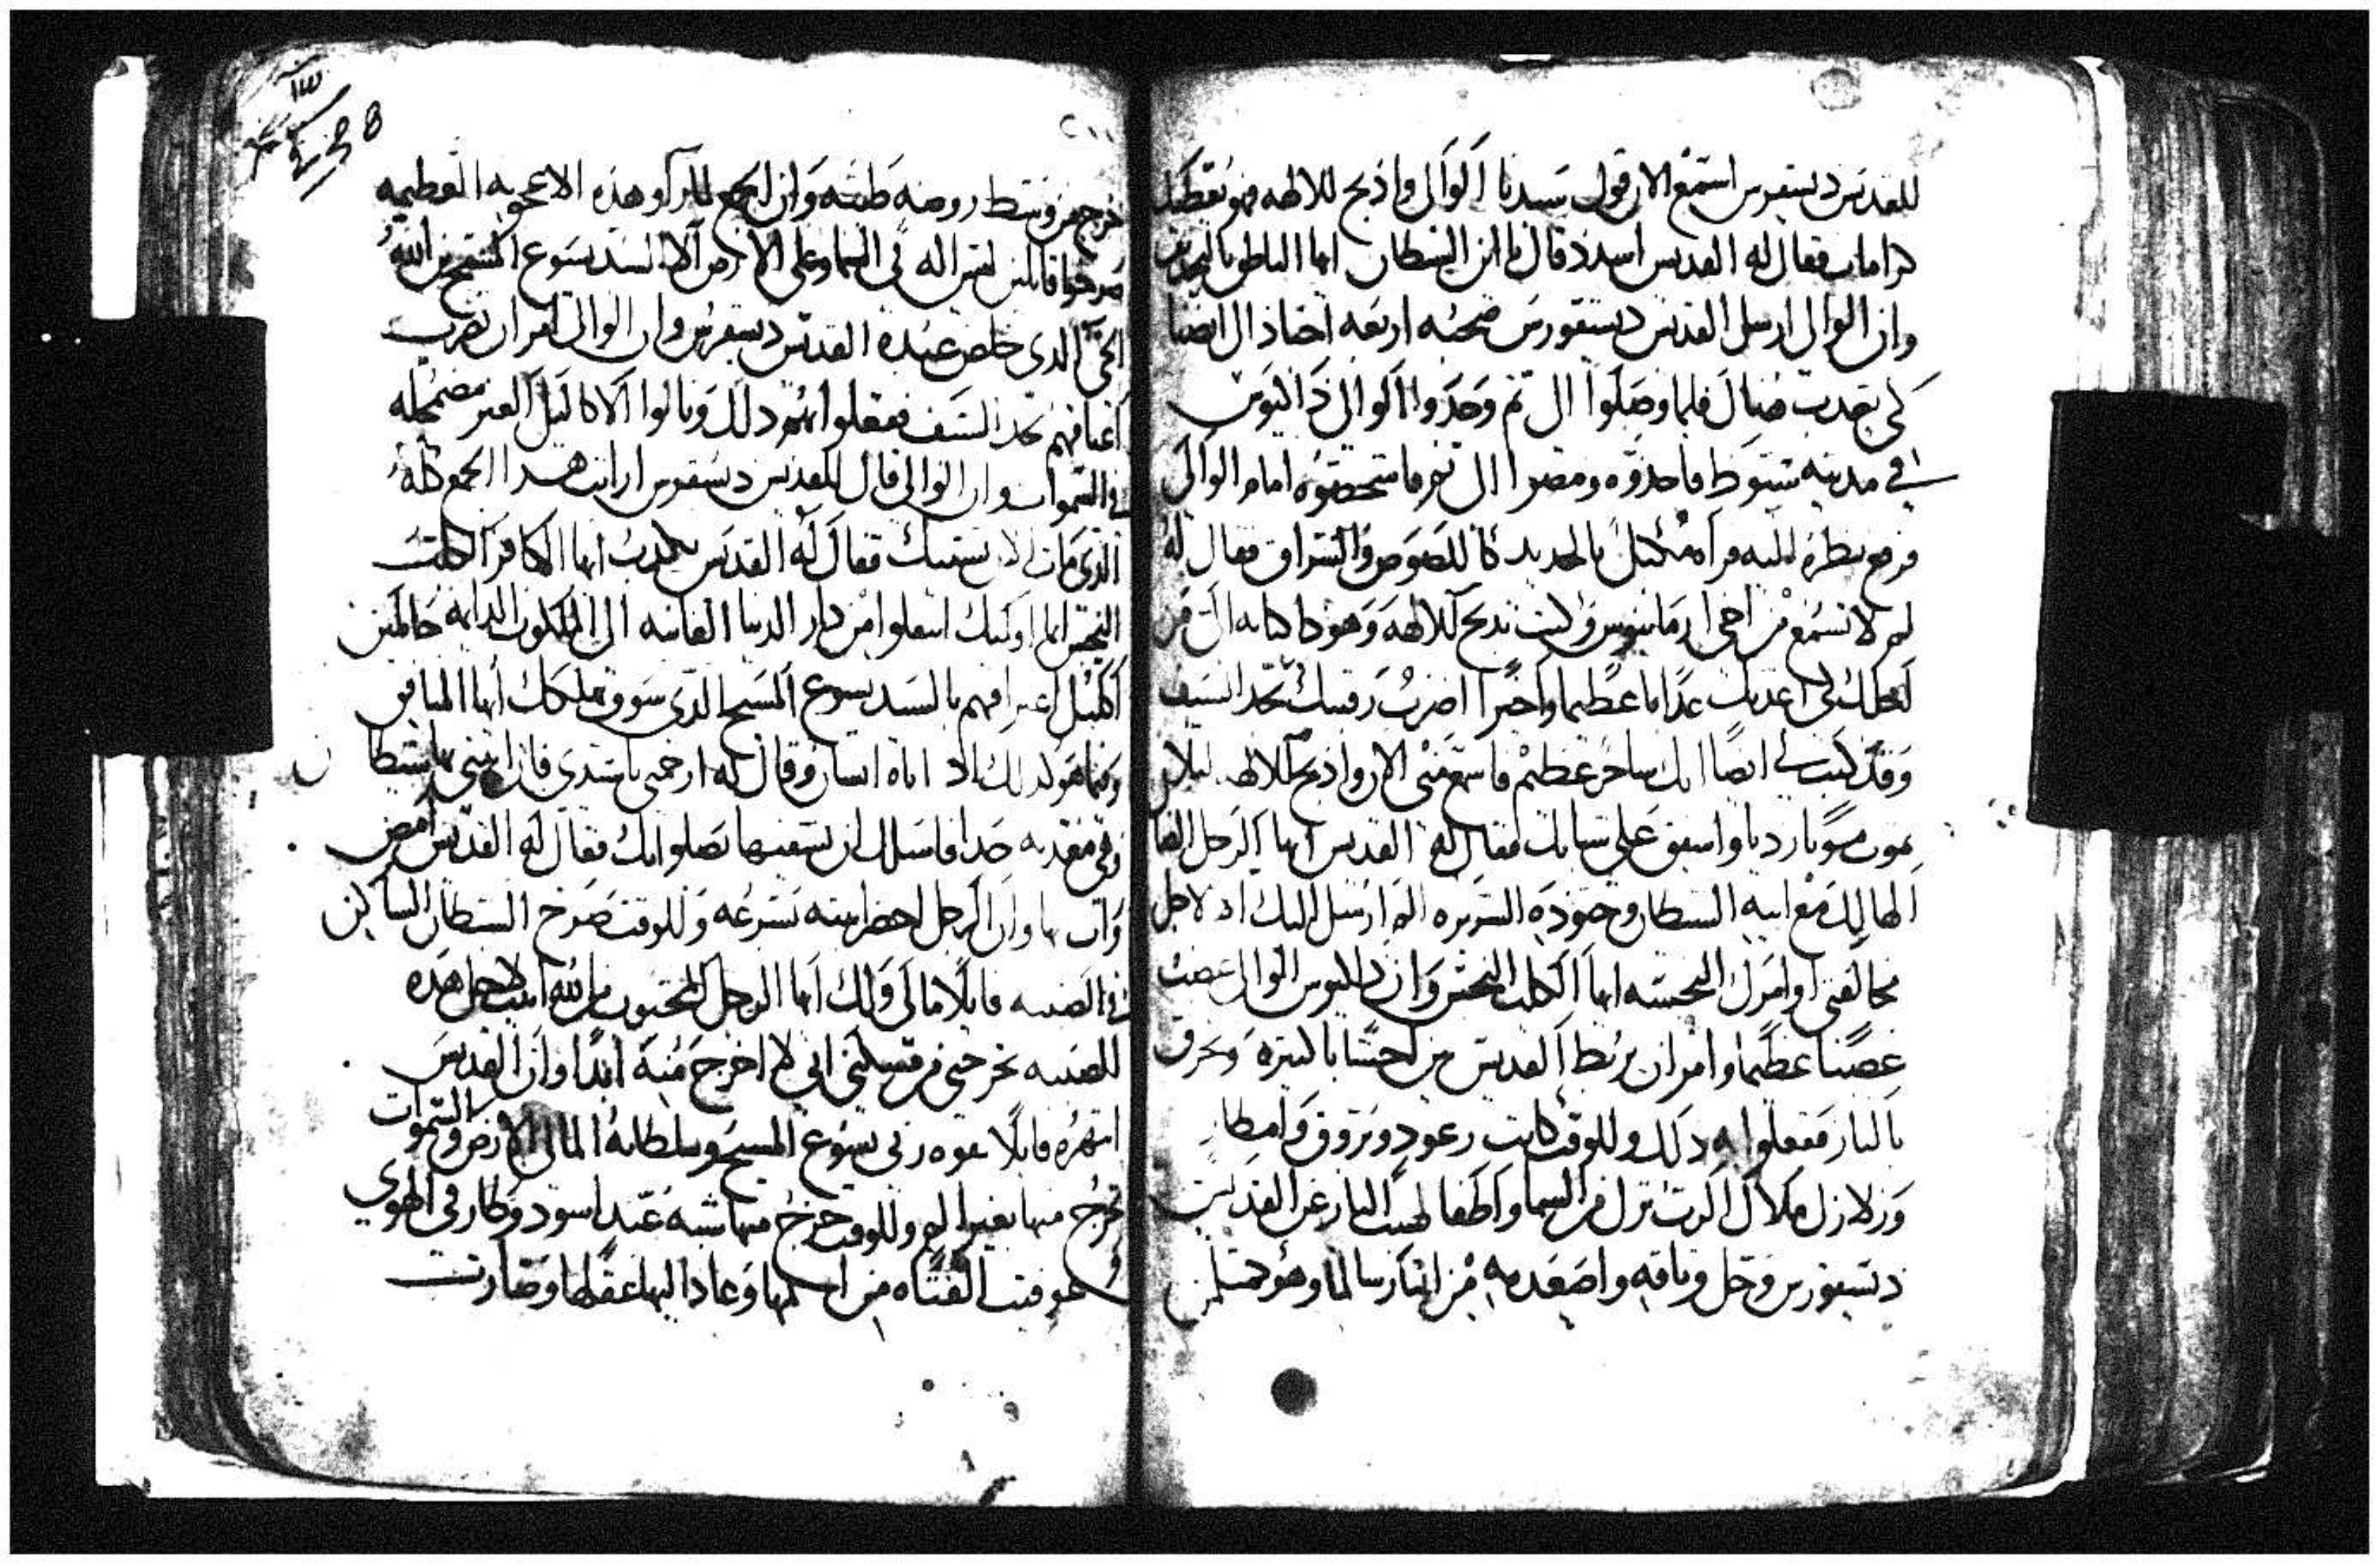 للقديس ديسقورس استمع الان قول سيدنا الوالى واذبح للالهه فهو يعطيك
كرامات فقال له القديس اسدد فاك يا ابن الشيطان ايها الناطق بالتجديف
وان الوالى ارسل القديس ديسقورس صحبه اربعه اجناد الى انصنا
لكى يعدب هناك فلما وصلوا الى تم وجدوا الوالى
فى مدينه سيوط فاخدوه ومضوا الى ثم فاستحضوه امام الوالى
فرفع نظره اليه فراه مكبل بالحديد كاللصوص والسراق فقال له
لم لا تسمع من اخى ارمانيوس وكنت تدبح للالهه وهودا كتابه الى
لكى اعدبك عدابا عظيما واخيرا اضرب رقبتك بحد السيف
وقد كتب لى ايضا انك ساحر عظيم فاسمع منى الان وادبح للالهه ليلا
تموت موتا رديا واشفق على شبابك فقال له القديس ايها الرجل
الهالك مع ابيه الشيطان وجنوده الشريره الدى ارسل اليك اد لاجل
مخالفتى اوامرك النجسه ايها الكلب النجس وان الوالى غضب
غضبا عظيما وامر ان يربط القديس من ويحرق
بالنار ففعلوا به دلك وللوقت كانت رعود وبروق وامطار
وزلازل وملاك الرب نزل من السما واطفا لهيب النار عن القديس
ديسقورس وحل وثاقه واصعده من النار سالما وهو
٢١١
١٣
238
خرج من وسط روضه طيبه وان الجمع لما راو هده الاعجوبه العظيمه
صرخوا قايلين ليس اله فى السما وعلى الارض الا السيد يسوع المسيح ابن الله
الحى الدى خلص عبده القديس ديسقورس وان الوالى امر ان تضرب
اعناقهم بحد السيف ففعلوا بهم دلك ونالوا الاكاليل الغير مضمحله
فى السموات وان الوالى قال للقديس ديسقورس ارايت هدا الجمع كله
الدى مات الان بسببك فقال له القديس تكدب ايها الكافر الكلب
النجس انما اوليك انتقلوا من دار الدنيا الفانيه الى الملكوت الدايمه حاملين
اكليل اعترافهم بالسيد يسوع المسيح الدى سوف يهلكك ايها المنافق
وفيما هو كدلك اد اتاه انسان وقال له ارحمنى يا سيدى فان ابنتى بها شيطان
وهى معدبه جدا فاسالك ان تشفيها بصلواتك فقال له القديس امض
وات بها وان الرجل احضر ابنته بسرعه وللوقت صرخ الشيطان الساكن
فى الصبيه قايلا مالى ولك ايها الرجل المحبوب من الله اتيت لاجل هده
للصبيه تخرجنى من مسكنى انى لم اخرج منه ابدا وان القديس
انتهره قايلا بقوه ربى يسوع المسيح وسلطانه المالى الارض والسموات
تخرج منها بغير الم وللوقت خرج منها شبه عبد اسود وطار فى الهوى
وعوفيت الفتاه من المها وعاد اليها عقلها وصارت